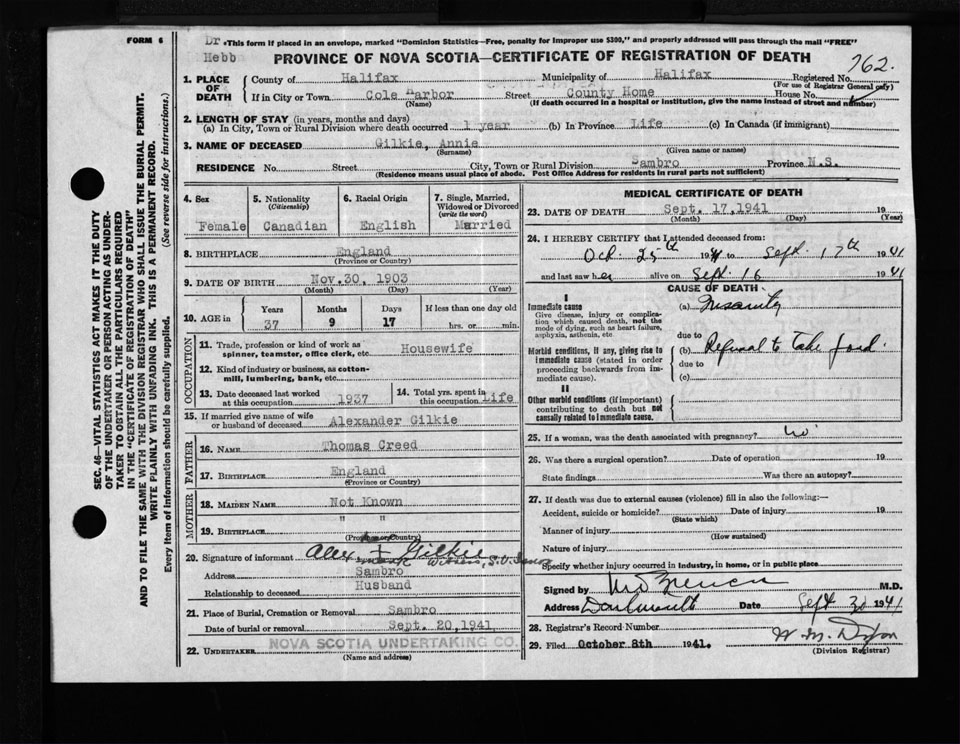 FORM 6
Dr Hebb
*This form if placed in an envelope, marked "Dominion Statistics—Free, penalty for improper use $300," and properly addressed will pass through the mail "FREE"
PROVINCE OF NOVA SCOTIA—CERTIFICATE OF REGISTRATION OF DEATH
762.
1. PLACE OF DEATH
County of Halifax Municipality of Halifax Registered No.
(For use of Registrar General only)
If in City or Town Cole Harbor Street County Home House No.
(Name) (If death occurred in a hospital or institution, give the name instead of street and number)
2. LENGTH OF STAY (in years, months and days)
(a) In City, Town or Rural Division where death occurred 1 year (b) In Province Life (c) In Canada (if immigrant)
3. NAME OF DECEASED Gilkie, Annie
(Surname) (Given name or names)
RESIDENCE No. Street City, Town or Rural Division Sambro Province N.S.
(Residence means usual place of abode. Post Office Address for residents in rural parts not sufficient)
4. Sex Female
5. Nationality (Citizenship) Canadian
6. Racial Origin English
7. Single, Married, Widowed or Divorced (write the word) Married
8. BIRTHPLACE England
(Province or Country)
9. DATE OF BIRTH Nov. 30, 1903
(Month) (Day) (Year)
10. AGE in Years 37 Months 9 Days 17 If less than one day old hrs. or min.
OCCUPATION
11. Trade, profession or kind of work as spinner, teamster, office clerk, etc. Housewife
12. Kind of industry or business, as cotton-mill, lumbering, bank, etc.
13. Date deceased last worked at this occupation 1937
14. Total yrs. spent in this occupation Life
15. If married give name of wife or husband of deceased Alexander Gilkie
FATHER
16. NAME Thomas Creed
17. BIRTHPLACE England
(Province or Country)
MOTHER
18. MAIDEN NAME Not Known
19. BIRTHPLACE " "
(Province or Country)
20. Signature of informant Alex his + Gilkie
mark Witness, S.O.
Address Sambro
Relationship to deceased Husband
21. Place of Burial, Cremation or Removal Sambro
Date of burial or removal Sept. 20, 1941
22. UNDERTAKER NOVA SCOTIA UNDERTAKING CO.
(Name and address)
MEDICAL CERTIFICATE OF DEATH
23. DATE OF DEATH Sept. 17, 1941 19
(Month) (Day) (Year)
24. I HEREBY CERTIFY that I attended deceased from:
Oct. 25th 19 to Sept. 17th 1941
and last saw her alive on Sept. 16 1941
CAUSE OF DEATH
I
Immediate cause (a) Insanity
Give disease, injury or complication which caused death, not the mode of dying, such as heart failure, asphyxia, asthenia, etc
due to
Morbid conditions, if any, giving rise to immediate cause (stated in order proceeding backwards from immediate cause).
(b) Refusal to take food.
due to
(c)
II
Other morbid conditions (if important) contributing to death but not causally related to immediate cause.
25. If a woman, was the death associated with pregnancy? No
26. Was there a surgical operation? Date of operation 19
State findings Was there an autopsy?
27. If death was due to external causes (violence) fill in also the following:—
Accident, suicide or homicide? Date of injury 19
(State which)
Manner of injury
(How sustained)
Nature of injury
Specify whether injury occurred in industry, in home, or in public place
Signed by M.D.
Address Dartmouth Date Sept 30 1941
28. Registrar's Record Number
29. Filed October 8th 1941. W. M. Dixon
(Division Registrar)
SEC. 46—VITAL STATISTICS ACT MAKES IT THE DUTY
OF THE UNDERTAKER OR PERSON ACTING AS UNDER-
TAKER TO OBTAIN ALL THE PARTICULARS REQUIRED
IN THE "CERTIFICATE OF REGISTRATION OF DEATH"
AND TO FILE THE SAME WITH THE DIVISION REGISTRAR WHO SHALL ISSUE THE BURIAL PERMIT.
WRITE PLAINLY WITH UNFADING INK. THIS IS A PERMANENT RECORD.
Every item of information should be carefully supplied. (See reverse side for instructions.)